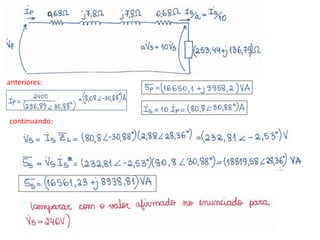 İp 0,68Ω j7,8Ω j7,8Ω 0,68Ω İs/a = İs/10
V̇p aV̇s = 10V̇s (253,44+j136,79)Ω
anteriores:
S̄p = (16650,1 + j 9958,2) VA
İp = 2400/(296,89∠30,88°) = (8,08∠-30,88°)A
İs = 10 İp = (80,8∠-30,88°)A
continuando:
V̇s = İs Z̄L = (80,8∠-30,88°)(2,88∠28,36°) = (232,81∠-2,53°)V
S̄s = V̇s İs* = (232,81∠-2,53°)(80,8∠30,88°) = (18819,58∠28,36°) VA
S̄s = (16561,23 + j 8938,81) VA
(comparar com o valor afirmado no enunciado para
V̇s = 240V)